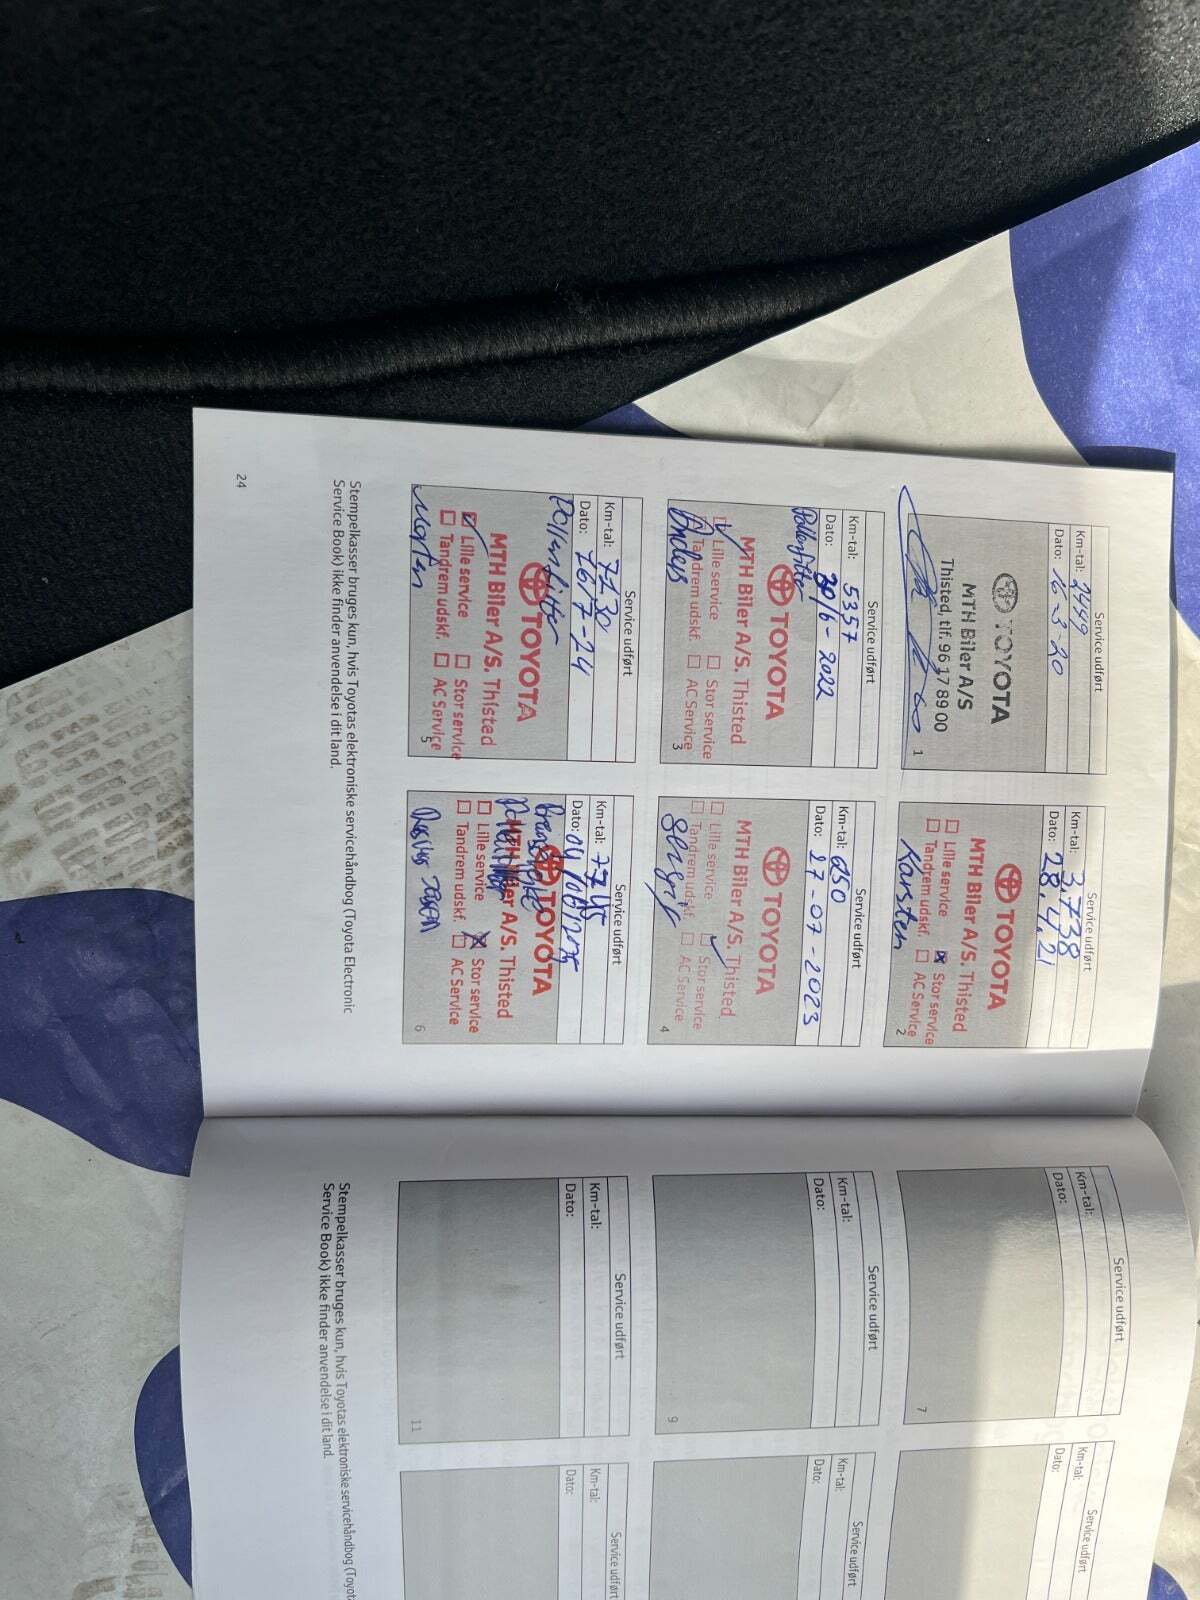 Service udført
Km-tal: 2449
Dato: 16-3-20
TOYOTA
MTH Biler A/S
Thisted, tlf. 96 17 89 00
1
Service udført
Km-tal: 3,738
Dato: 28,4,21
TOYOTA
MTH Biler A/S. Thisted
Lille service Stor service
Tandrem udskf. AC Service
Karsten
2
Service udført
Km-tal: 5357
Dato: 30/6-2022
Pollenfilter
TOYOTA
MTH Biler A/S. Thisted
Lille service Stor service
Tandrem udskf. AC Service
Anders
3
Service udført
Km-tal: 6150
Dato: 27-07-2023
TOYOTA
MTH Biler A/S. Thisted
Lille service Stor service
Tandrem udskf. AC Service
Sergij
4
Service udført
Km-tal: 7130
Dato: 16/7-24
Pollenfilter
TOYOTA
MTH Biler A/S. Thisted
Lille service Stor service
Tandrem udskf. AC Service
Morten
5
Service udført
Km-tal: 7745
Dato:
TOYOTA
MTH Biler A/S. Thisted
Lille service Stor service
Tandrem udskf. AC Service
6
Stempelkasser bruges kun, hvis Toyotas elektroniske servicehåndbog (Toyota Electronic
Service Book) ikke finder anvendelse i dit land.
24
Service udført
Km-tal:
Dato:
7
Service udført
Km-tal:
Dato:
Service udført
Km-tal:
Dato:
9
Service udført
Km-tal:
Dato:
Service udført
Km-tal:
Dato:
11
Service udført
Km-tal:
Dato:
Stempelkasser bruges kun, hvis Toyotas elektroniske servicehåndbog (Toyota
Service Book) ikke finder anvendelse i dit land.